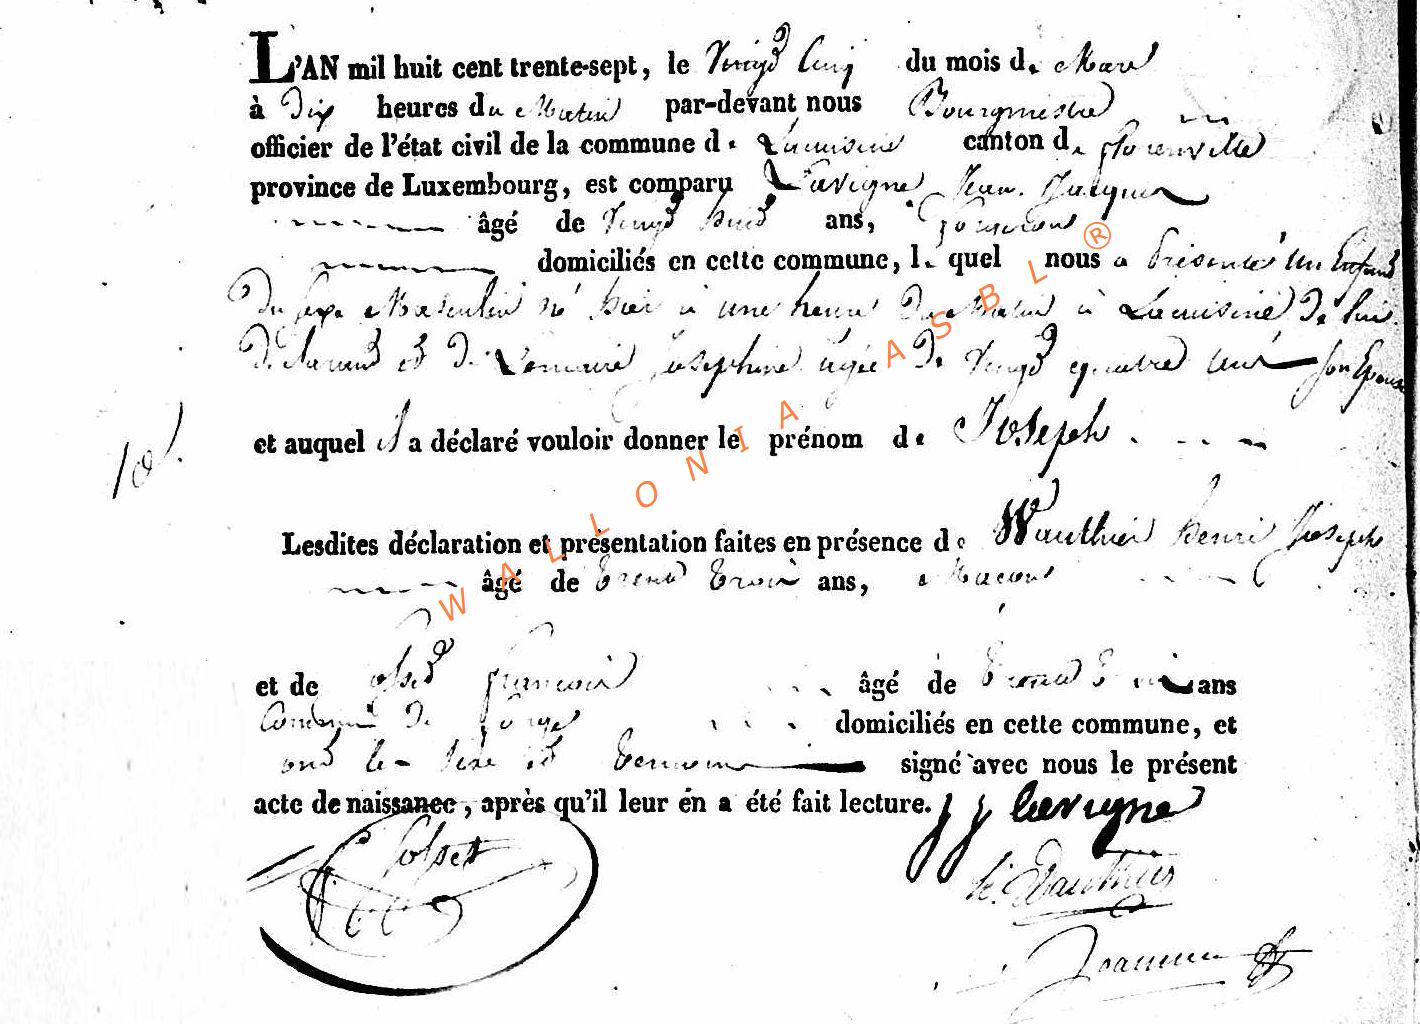 L'AN mil huit cent trente-sept, le Vingt Cinq du mois de Mars
à Dix heures du Matin par-devant nous Bourgmestre
officier de l'état civil de la commune de Lacuisine canton de florenville
province de Luxembourg, est comparu Lavigne Jean Jacques
âgé de Vingt huit ans,
domiciliés en cette commune, le quel nous a présenté un Enfant
Du sexe Masculin né hier à une heure Du Matin à Lacuisine De lui
Déclarant et De Lemaire Josephine agée De Vingt quatre ans son Epouse
et auquel il a déclaré vouloir donner le prénom de Joseph
101.
Lesdites déclaration et présentation faites en présence de Wauthier henri Joseph
âgé de trente trois ans, Macon
et de françois âgé de trente trois ans
Commis De forges domiciliés en cette commune, et
ont les père et témoins signé avec nous le présent
acte de naissance, après qu'il leur en a été fait lecture. j j lavigne
h. Wauthier
WALLONIA ASBL ®